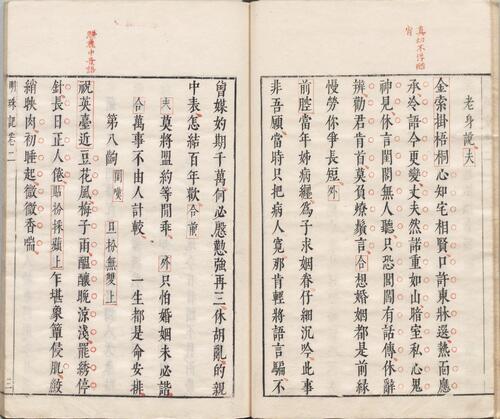 真切不浮膩
老身說夫
金索掛梧桐心知宅相賢口許東牀選熱面應
承冷語今更變丈夫然諾重如山暗室私心鬼
神見休言閨閫無人聽只恐閭閻有話傳休辭
辨勸君肯首莫負燎鬚言合想婚姻都是前緣
慢勞你爭長短外
前腔當年姊病纏為子求姻眷仔細沉吟此事
非吾願當時只把病人寬那肯輕將語言騙不
曾媒妁期千萬何必慇懃強再三休胡亂的親
中表怎結百年歡合前
夫莫將盟約等閒乖 外只怕婚姻未必諧
合萬事不由人計較 一生都是命安排
第八齣 閨嘆 旦扮無雙上
祝英臺近豆花風梅子雨醞釀晚涼淺罷綉停
針長日正人倦貼扮採蘋上乍堪象簟侵肌鮫
綃映肉初睡起微微香喘
明珠記卷二